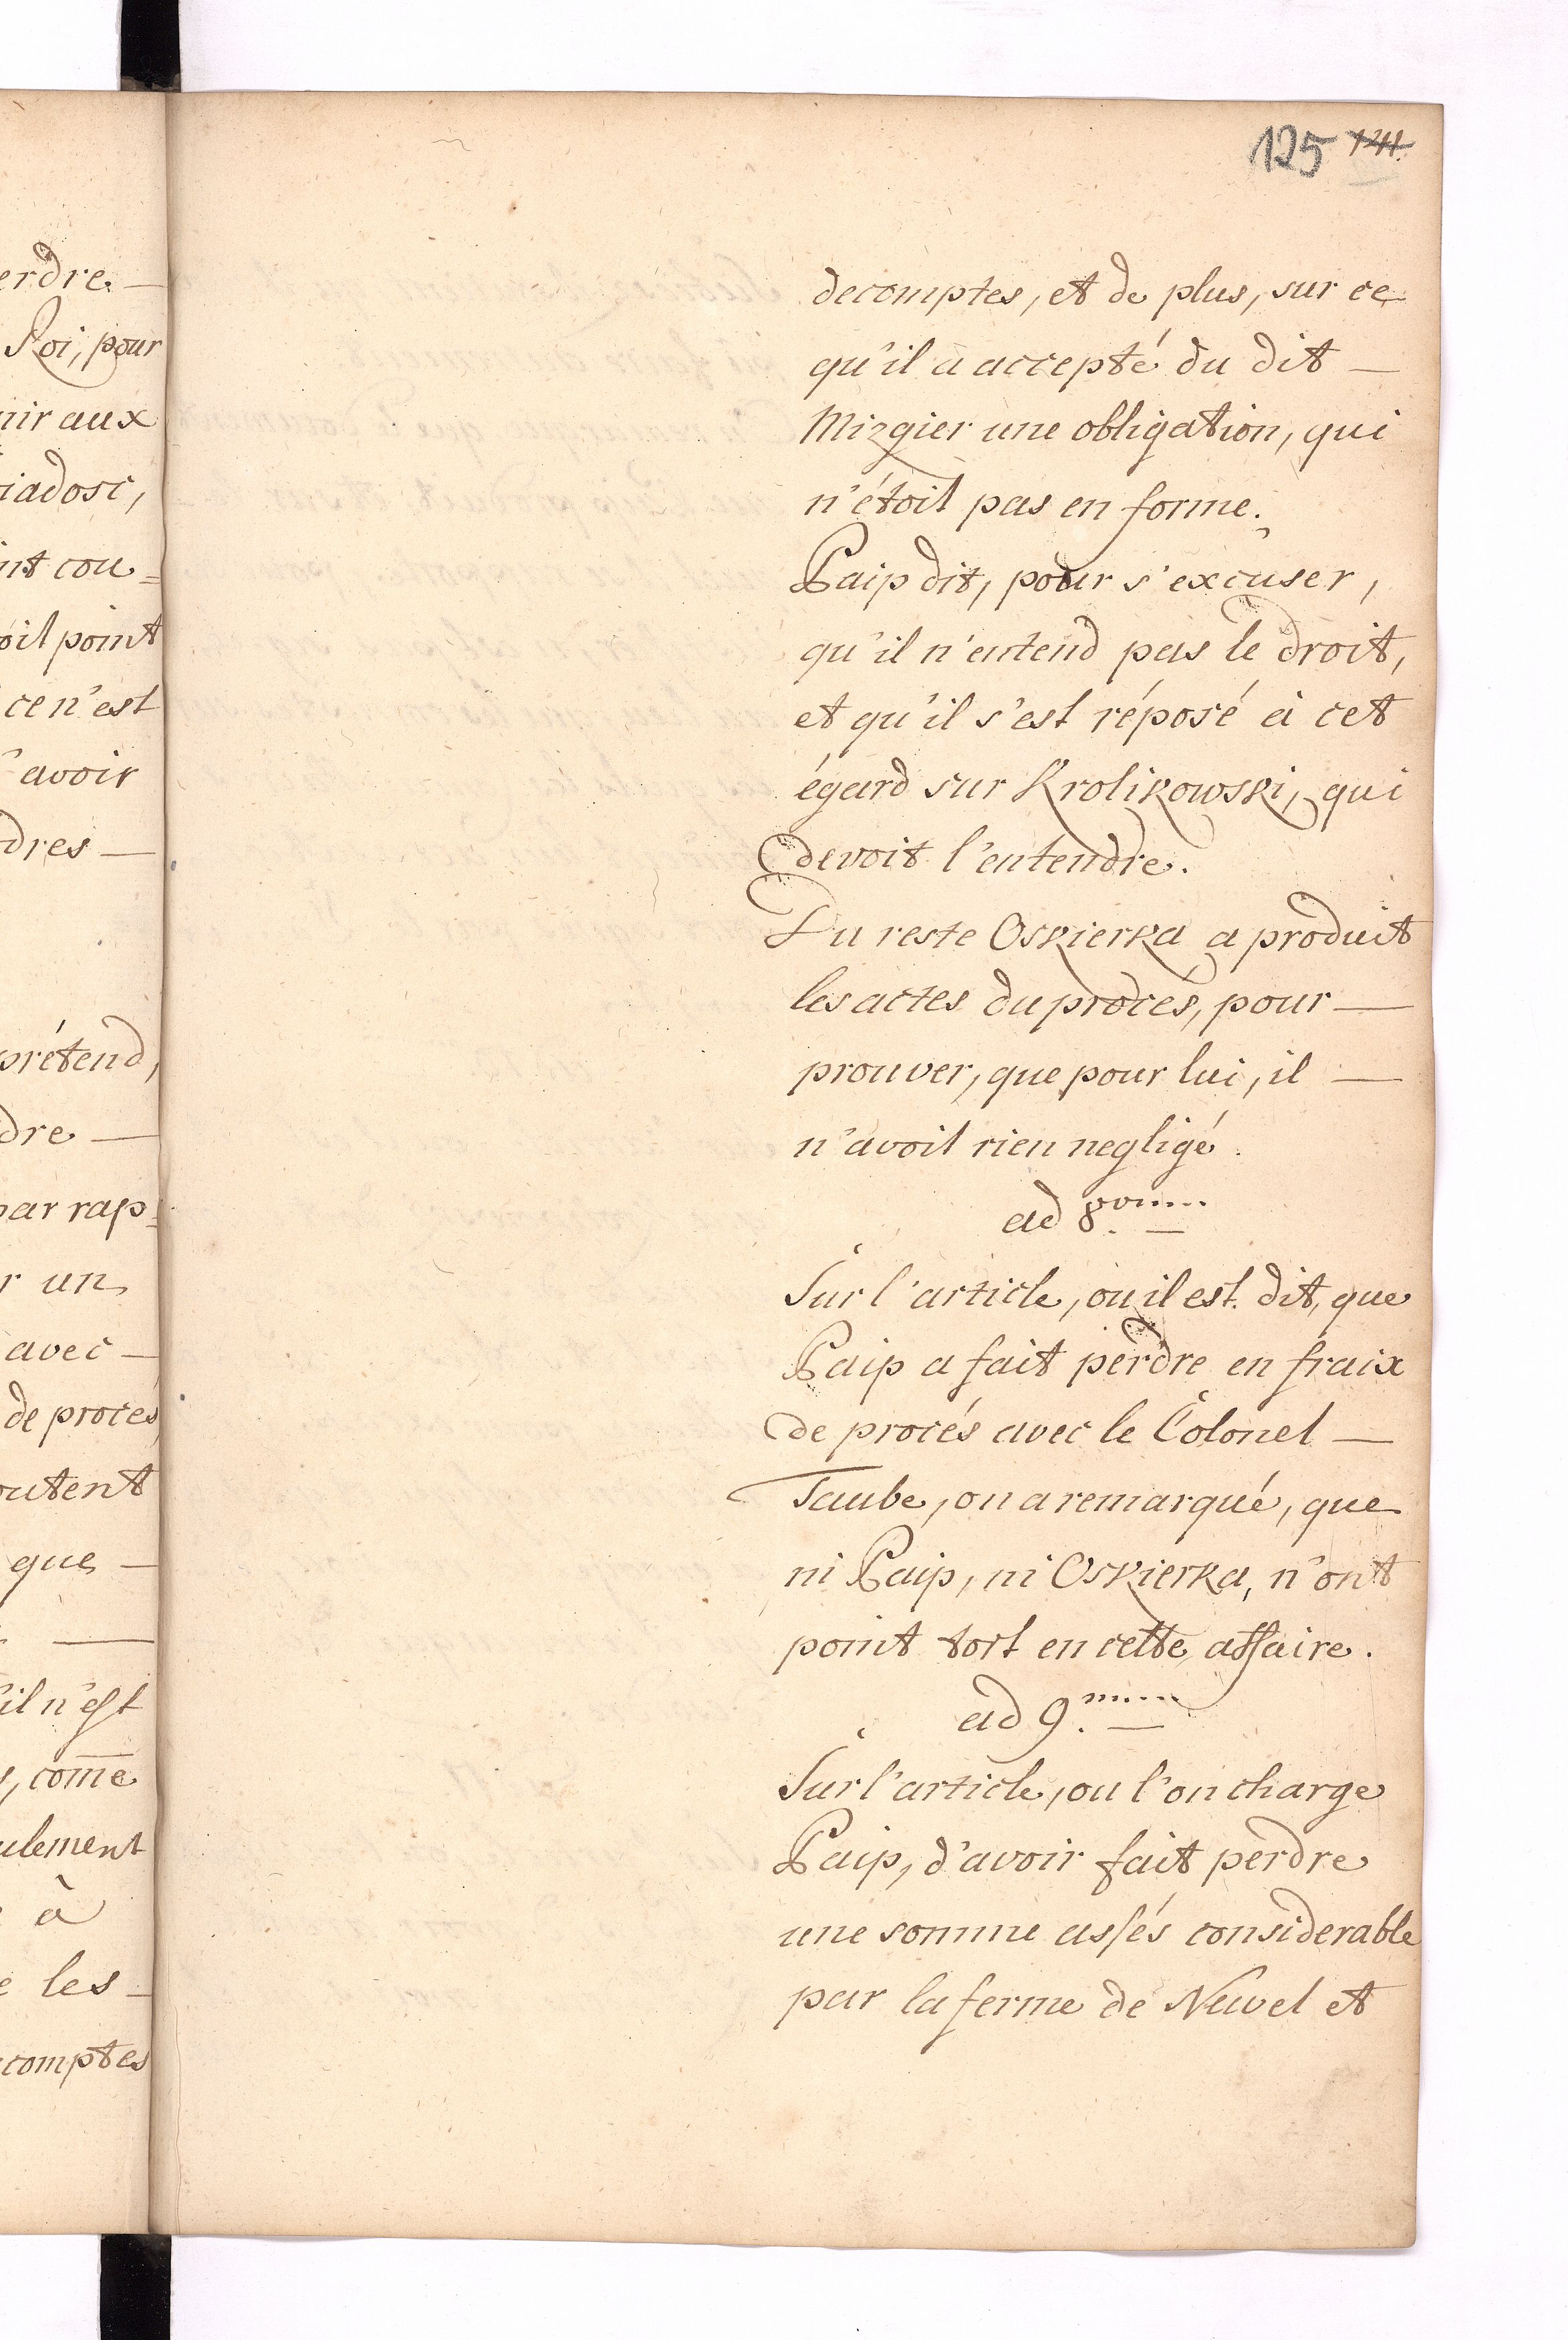 erdre. —
Roi, pour
nir aux
iadosc,
int cou=
oit point
ce n'est
'avoir
dres —
prétend,
dre —
par rap=
r un
avec —
de procés
outent
que —
'il n'est
, com̄e
ulement
à
e les —
comptes
125 124.
decomptes, et de plus, sur ce
qu'il a accepté du dit —
Mizgier une obligation, qui
n'étoit pas en forme.
Paip dit, pour s'excuser,
qu'il n'entend pas le droit,
et qu'il s'est réposé à cet
égard sur Krolikowski, qui
devoit l'entendre.
Du reste Oskierka a produit
les actes du procés, pour —
prouver, que pour lui, il —
n'avoit rien negligé.
ad 8.vum
Sur l'article, ou il est dit, que
Paip a fait perdre en fraix
de procés avec le Colonel —
Taube, on a remarqué, que
ni Paip, ni Oskierka, n'ont
point tort en cette affaire.
ad 9.num
Sur l'article, ou l'on charge
Paip, d'avoir fait perdre
une somme assés considerable
par la ferme de Newel et